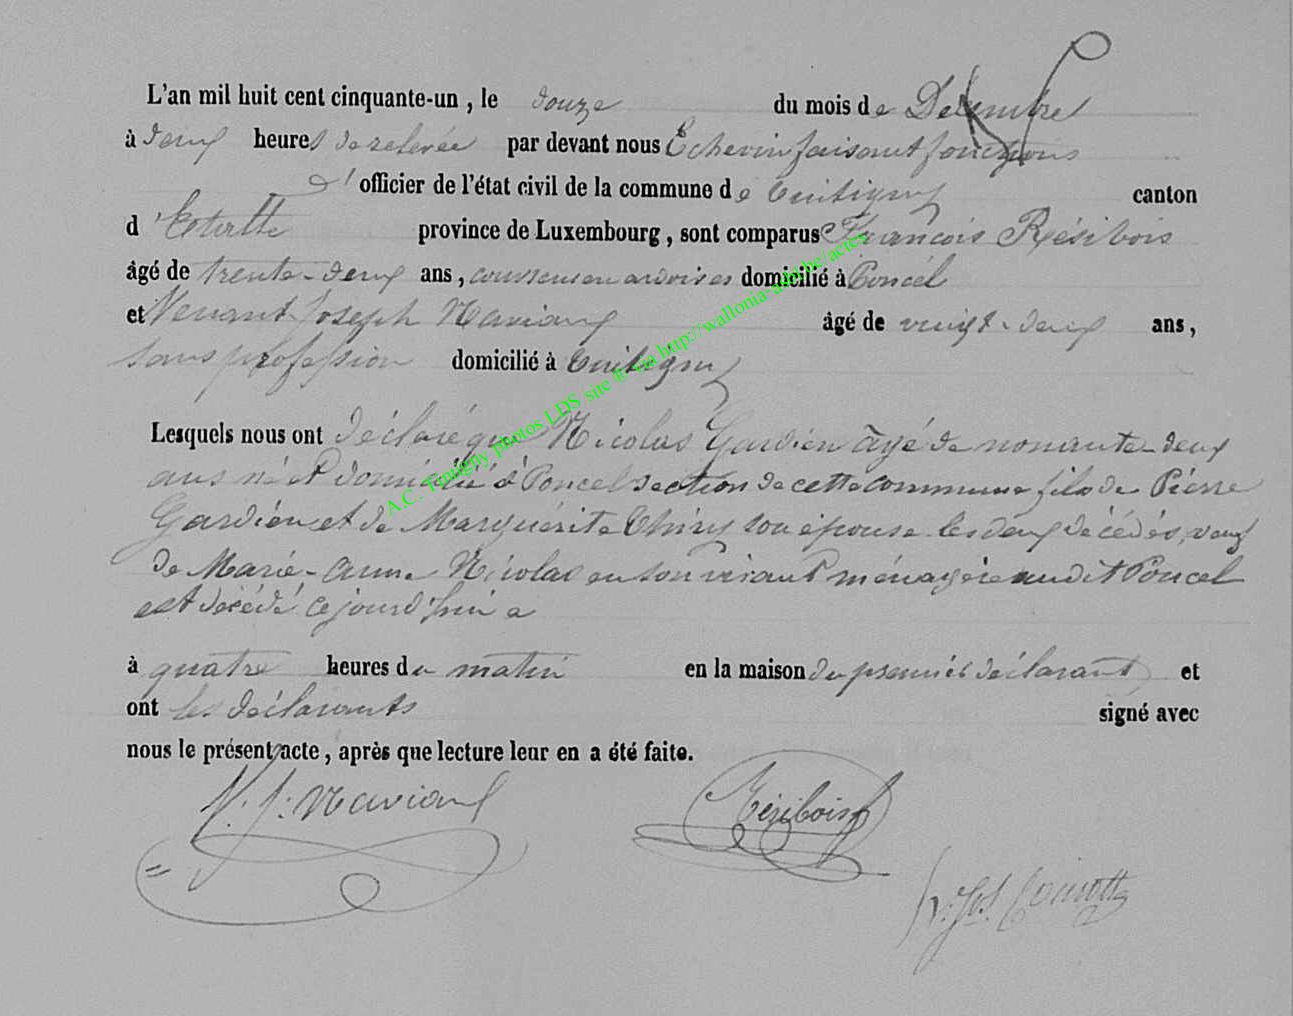 L'an mil huit cent cinquante-un, le douze du mois de Décembre
à deux heures de relevée par devant nous Echevin faisant fonctions
d'officier de l'état civil de la commune de Tintigny canton
d'Etalle province de Luxembourg, sont comparus François Résibois
âgé de trente-deux ans, couvreur en ardoises domicilié à Poncel
et Venant Joseph Maviang âgé de vingt-deux ans,
sans profession domicilié à Tintigny
Lesquels nous ont déclaré que Nicolas Gardien âgé de nonante-deux
ans né et domicilié à Poncel section de cette commune fils de Pierre
Gardien et de Marguérite Thiry son épouse les deux décédés, veuf
de Marie-Anne Nicolas en son vivant ménagère audit Poncel
est décédé cejourd'hui a
à quatre heures du matin en la maison du premier déclarant et
ont les déclarants signé avec
nous le présent acte, après que lecture leur en a été faite.
Résibois
A.C. Tintigny photos LDS site http://wallonia-asbl.be/actes